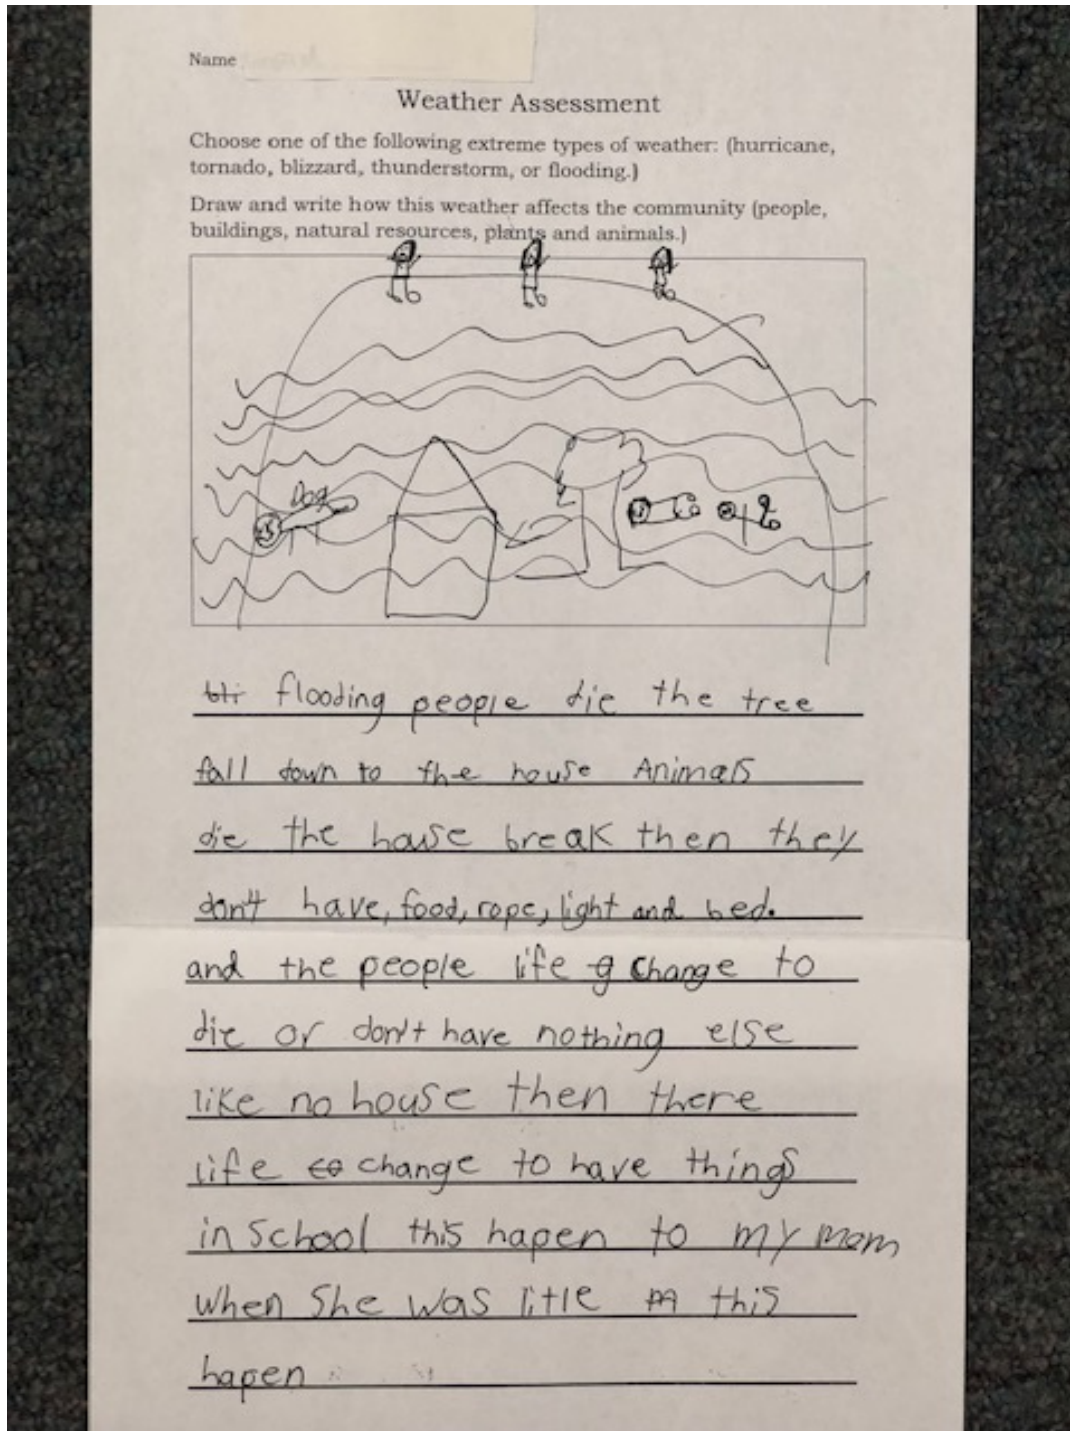 Name
Weather Assessment
Choose one of the following extreme types of weather: (hurricane,
tornado, blizzard, thunderstorm, or flooding.)
Draw and write how this weather affects the community (people,
buildings, natural resources, plants and animals.)
Dog
bli flooding people die the tree
fall down to the house Animals
die the house break then they
don't have, food, rope, light and bed.
and the people life g change to
die or don't have nothing else
like no house then there
life co change to have things
in School this hapen to my mom
when She was litle m this
hapen